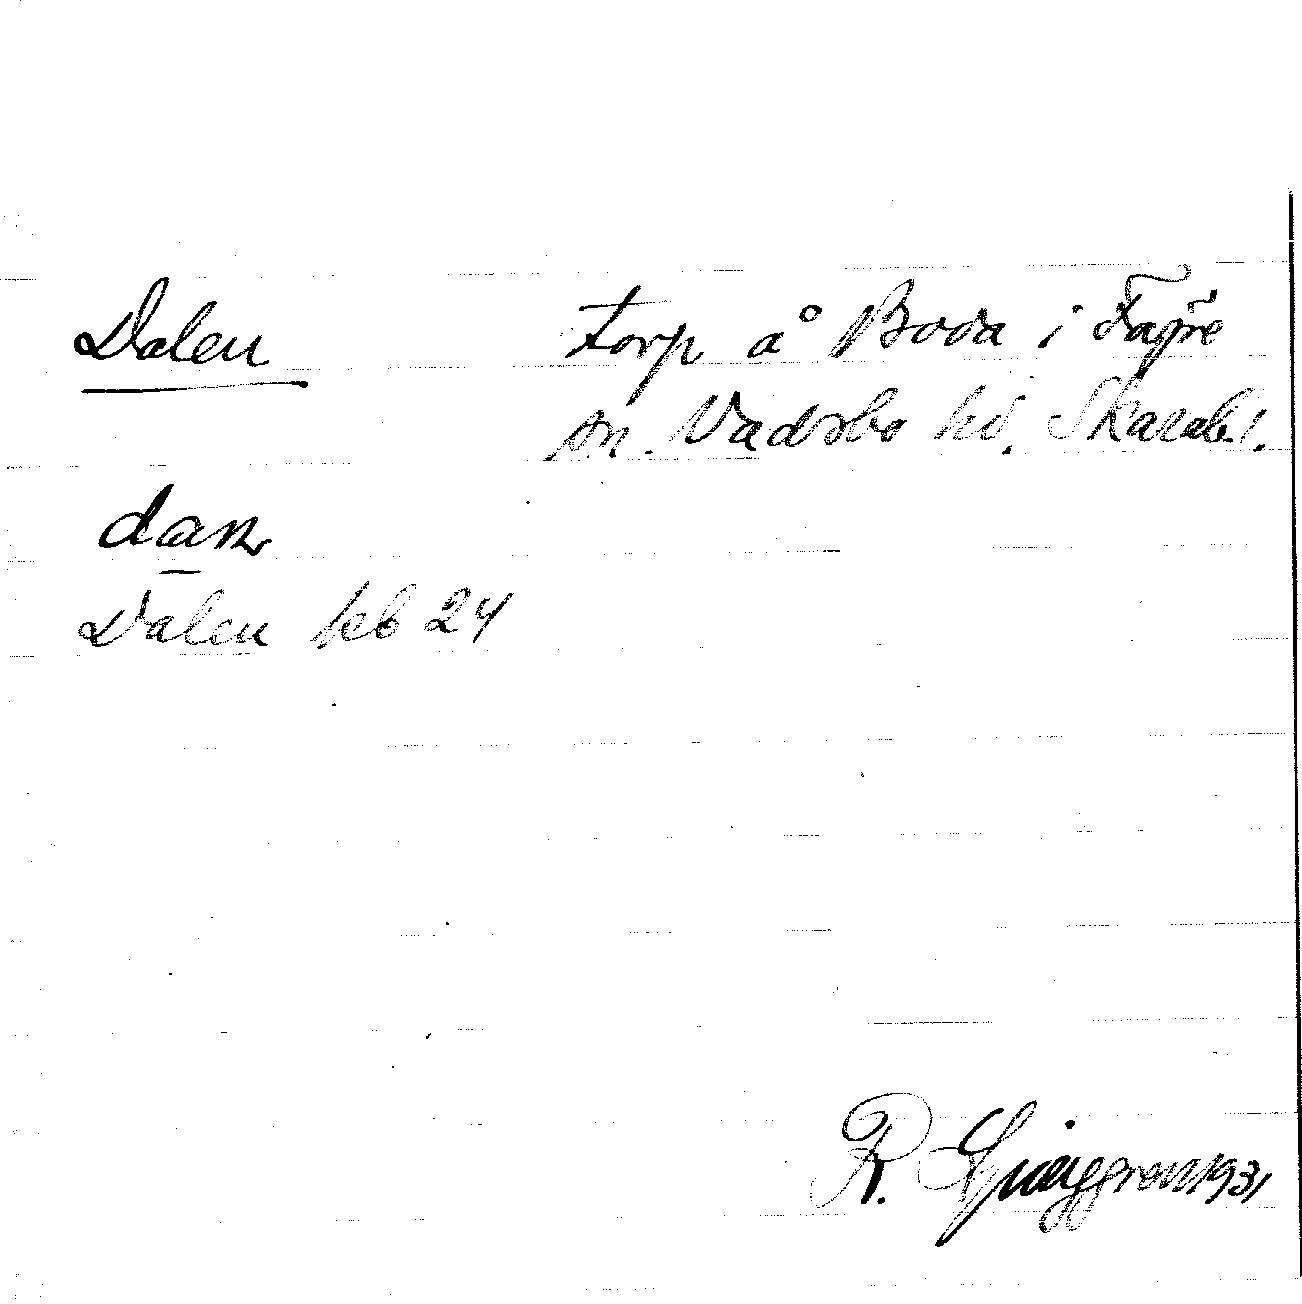 Dalen torp å Boda i Fägre
sn. Vadsbo hd. Skarab. l.
dan
Dalen jeb 24
R. Ljunggren 1931